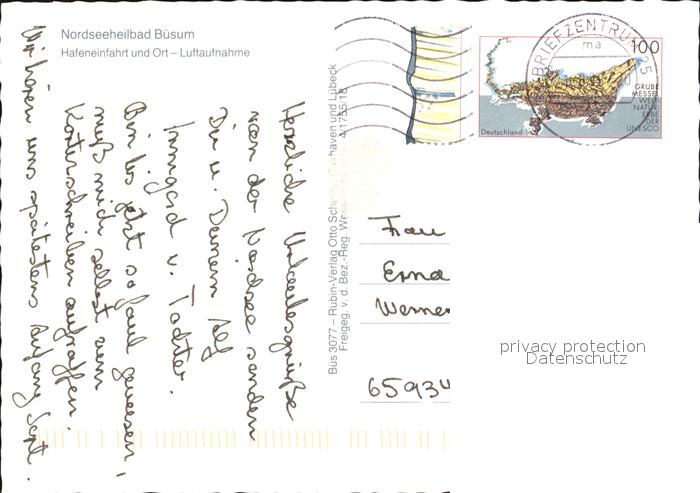 Nordseeheilbad Büsum
Hafeneinfahrt und Ort – Luftaufnahme
Herzliche Urlaubsgrüße
von der Nordsee senden
Dir u. Deinem Alf
Irmgard u. Tochter.
Bin bis jetzt so faul gewesen,
muß mich selbst zum
Kartenschreiben aufraffen.
Wir hören uns spätestens Anfang Sept.
Büs 3077 – Rubin-Verlag Otto haven und Lübeck
Freigeg. v. d. Bez.-Reg. 41755/18
BRIEFZENTRUM 25
ma
100
GRUBE
MESSEL
WELT
NATUR
ERBE
DER
UNESCO
Deutschland
Frau
Erna
Werner
65934
privacy protection
Datenschutz